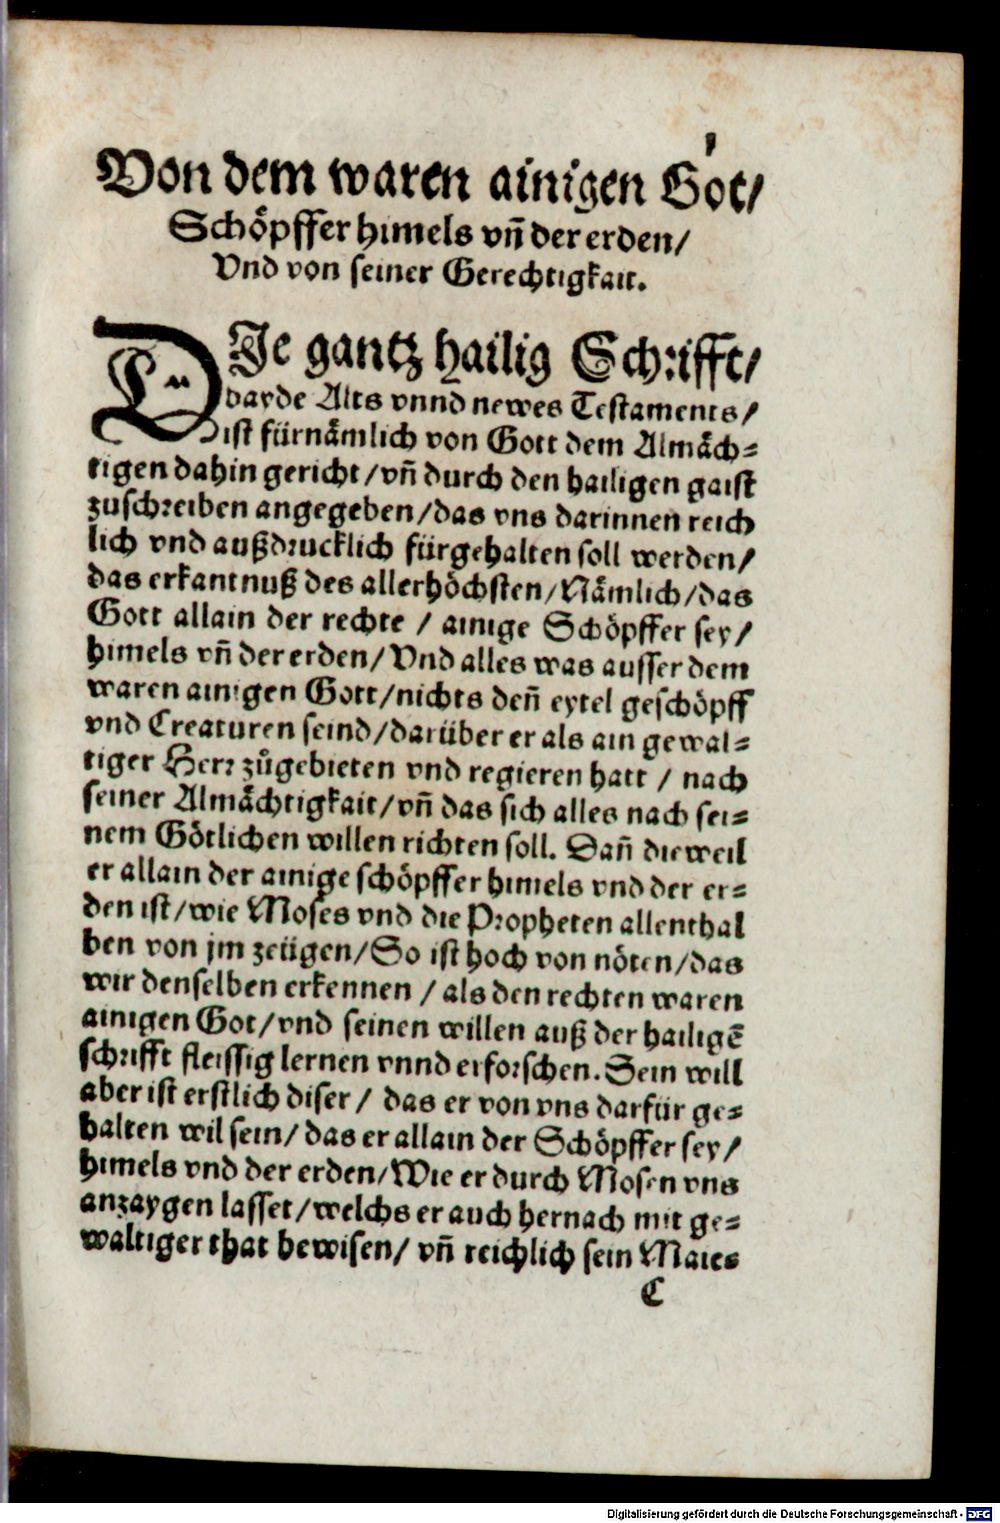 Von dem waren ainigen Got/
Schöpffer himels vñ der erden/
Vnd von seiner Gerechtigkait.
DIe gantz hailig Schrifft/
bayde Alts vnnd newes Testaments/
ist fürnämlich von Gott dem Almäch-
tigen dahin gericht/vñ durch den hailigen gaist
zuschreiben angegeben/das vns darinnen reich
lich vnd außdrucklich fürgehalten soll werden/
das erkantnuß des allerhöchsten/Nämlich/das
Gott allain der rechte / ainige Schöpffer sey/
himels vñ der erden/Vnd alles was ausser dem
waren ainigen Gott/nichts deñ eytel geschöpff
vnd Creaturen seind/darüber er als ain gewal-
tiger Herr zůgebieten vnd regieren hatt / nach
seiner Almächtigkait/vñ das sich alles nach sei-
nem Götlichen willen richten soll. Dañ dieweil
er allain der ainige schöpffer himels vnd der er-
den ist/wie Moses vnd die Propheten allenthal
ben von jm zeügen/So ist hoch von nöten/das
wir denselben erkennen / als den rechten waren
ainigen Got/vnd seinen willen auß der hailigẽ
schrifft fleissig lernen vnnd erforschen. Sein will
aber ist erstlich diser / das er von vns darfür ge-
halten wil sein/das er allain der Schöpffer sey/
himels vnd der erden/Wie er durch Mosen vns
anzaygen lasset/welchs er auch hernach mit ge-
waltiger that bewisen/ vñ reichlich sein Maies
C
Digitalisierung gefördert durch die Deutsche Forschungsgemeinschaft - DFG